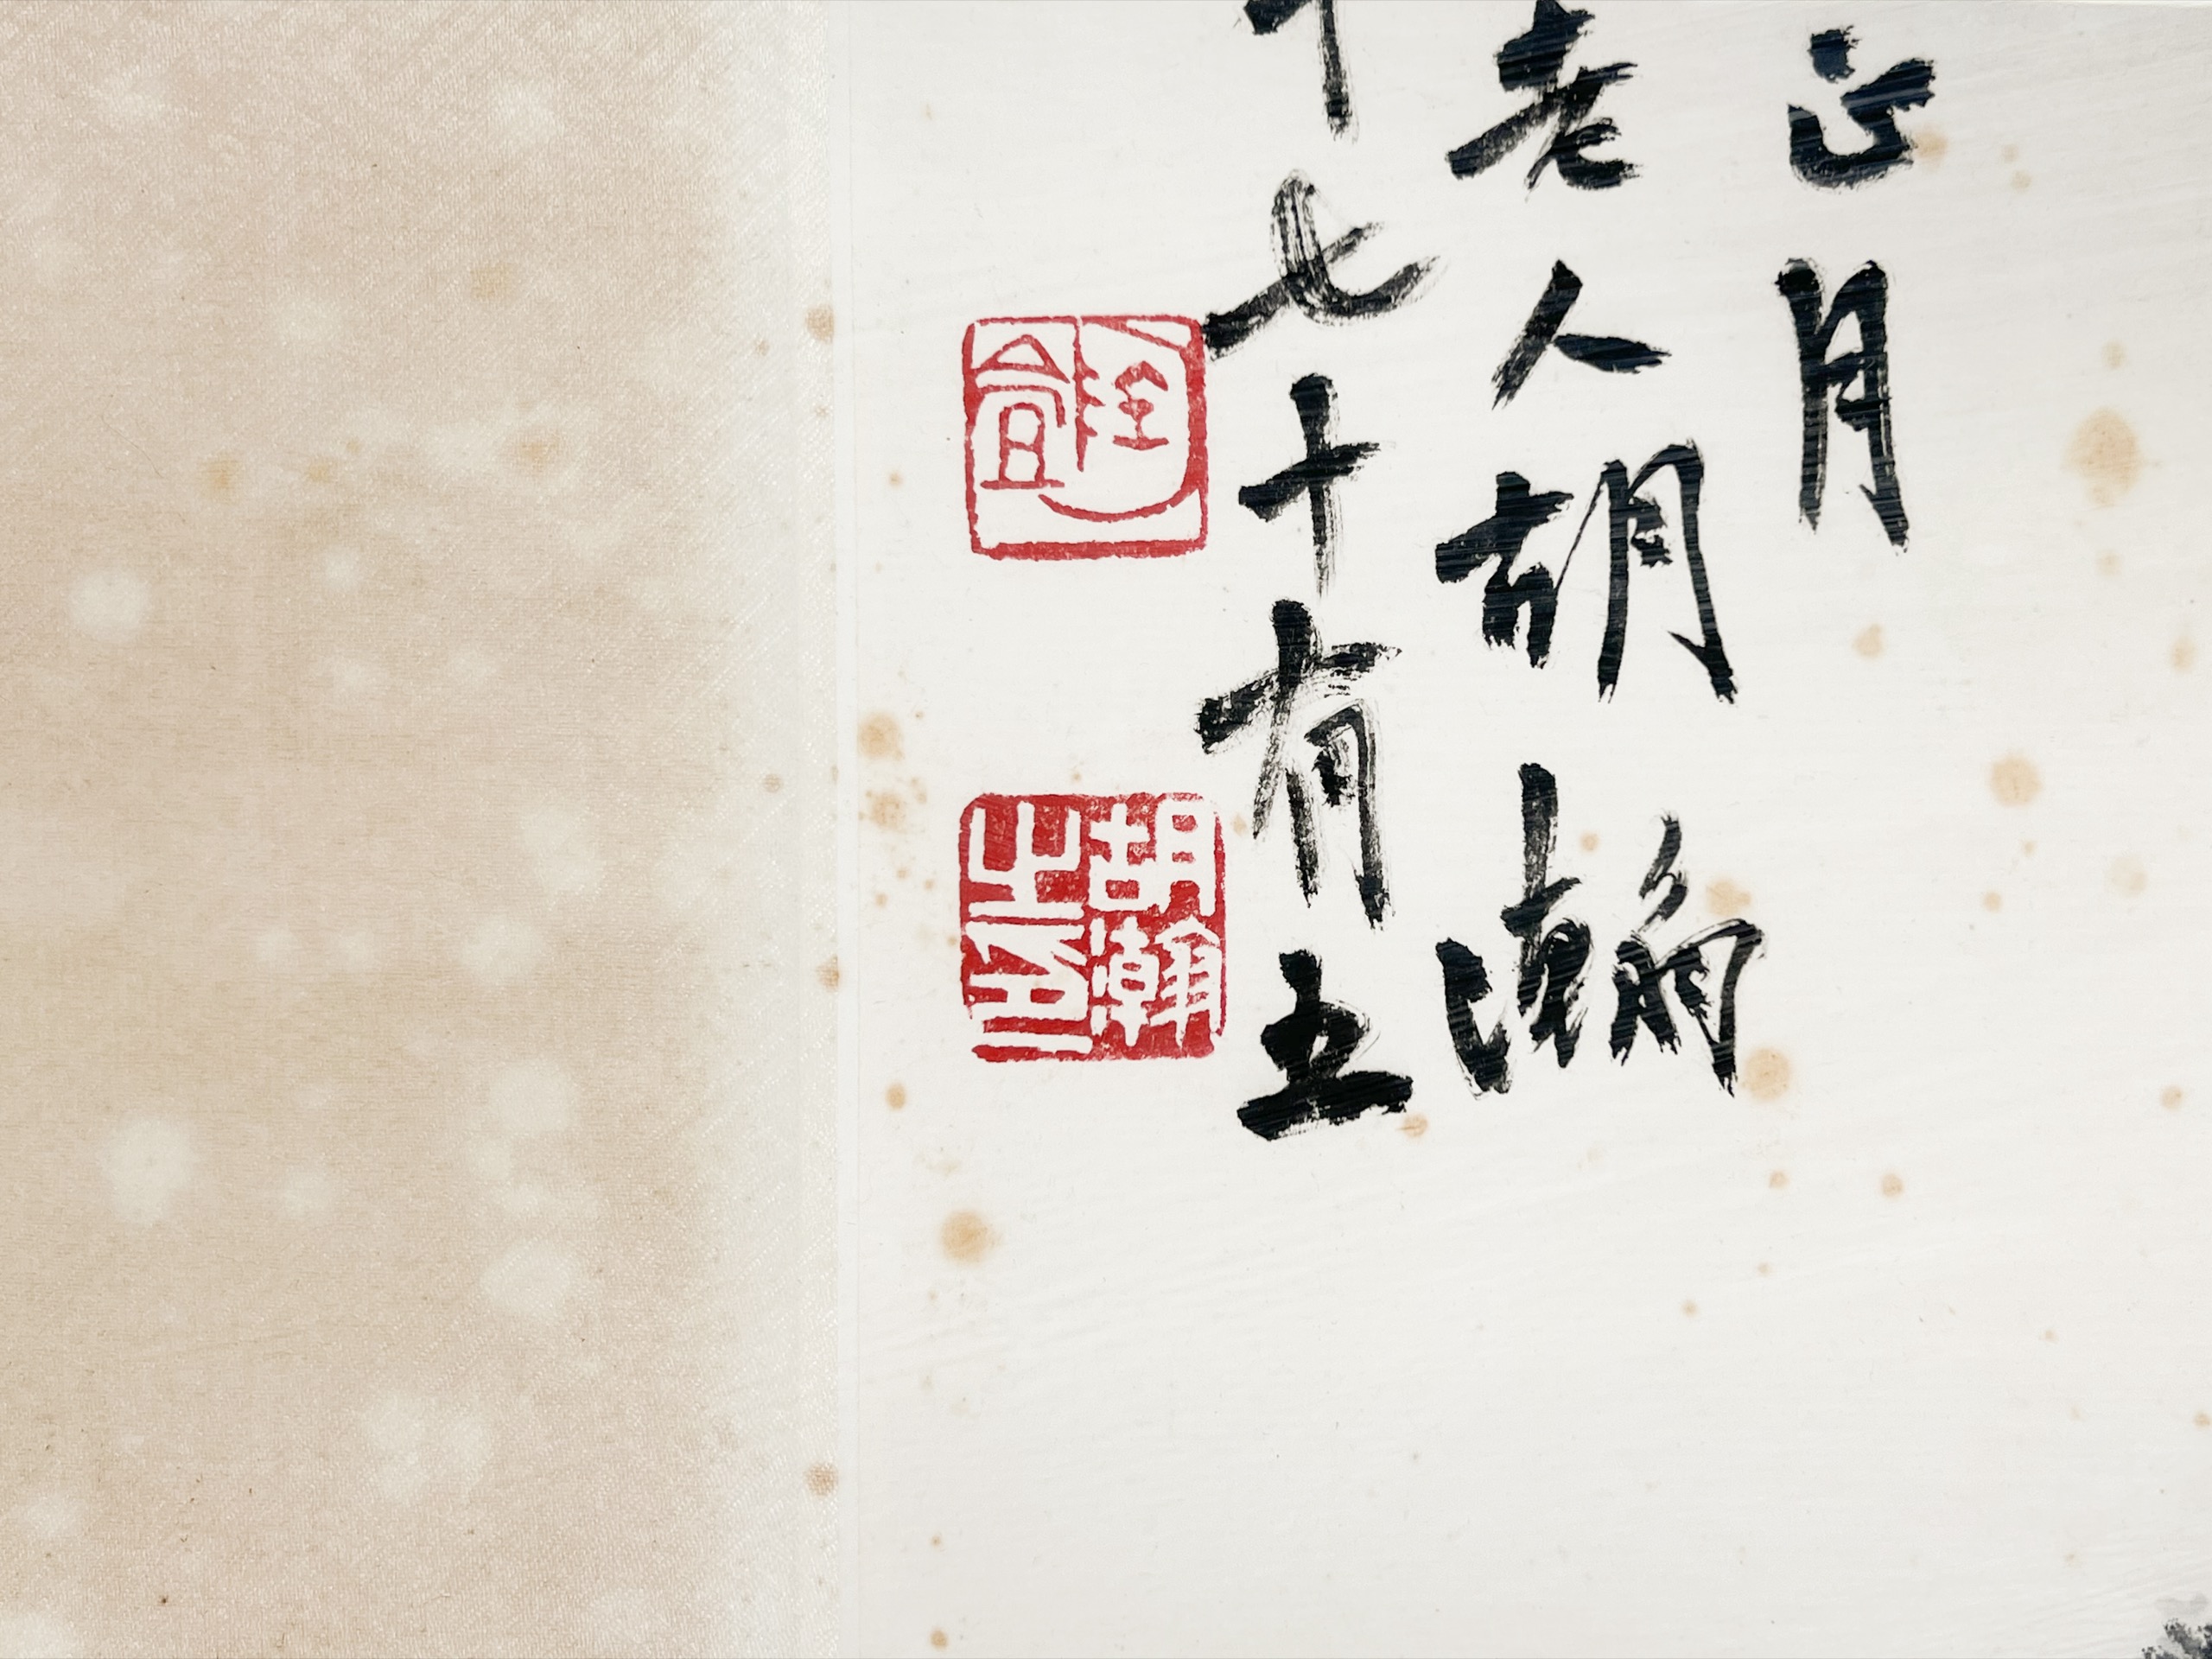 正月
老人胡瀚
年七十有五
胡瀚之印